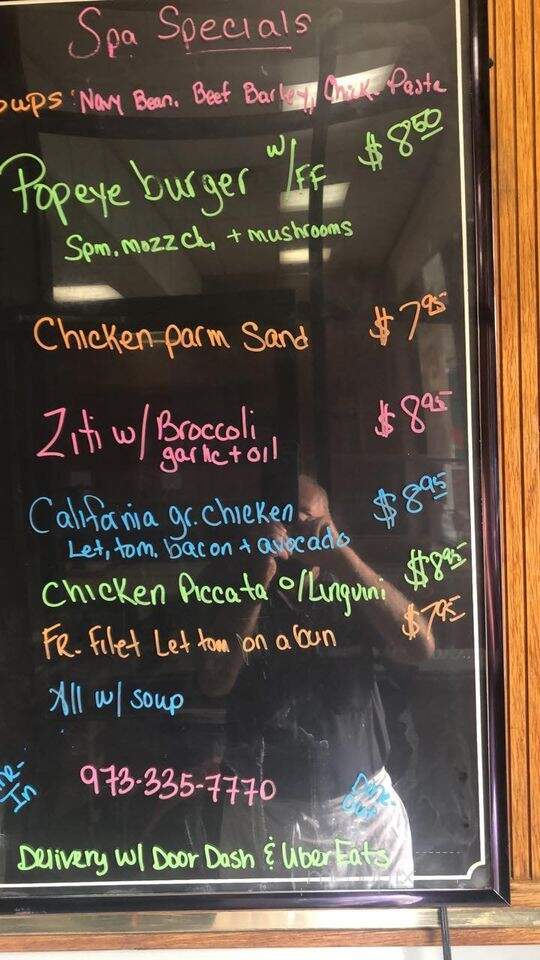 Spa Specials
oups: Navy Bean, Beef Barley, Chick. Pasta
Popeye burger w/FF $8.50
Spin, mozz ch, + mushrooms
Chicken parm Sand $7.95
Ziti w/ Broccoli $8.95
garlic + oil
California gr. chicken $8.95
Let, tom, bacon + avocado
Chicken Piccata o/Linguini $8.95
Fr. Filet Let tom on a bun $7.95
All w/ soup
In
973-335-7770
Dine-
Out
Delivery w/ Door Dash & UberEats